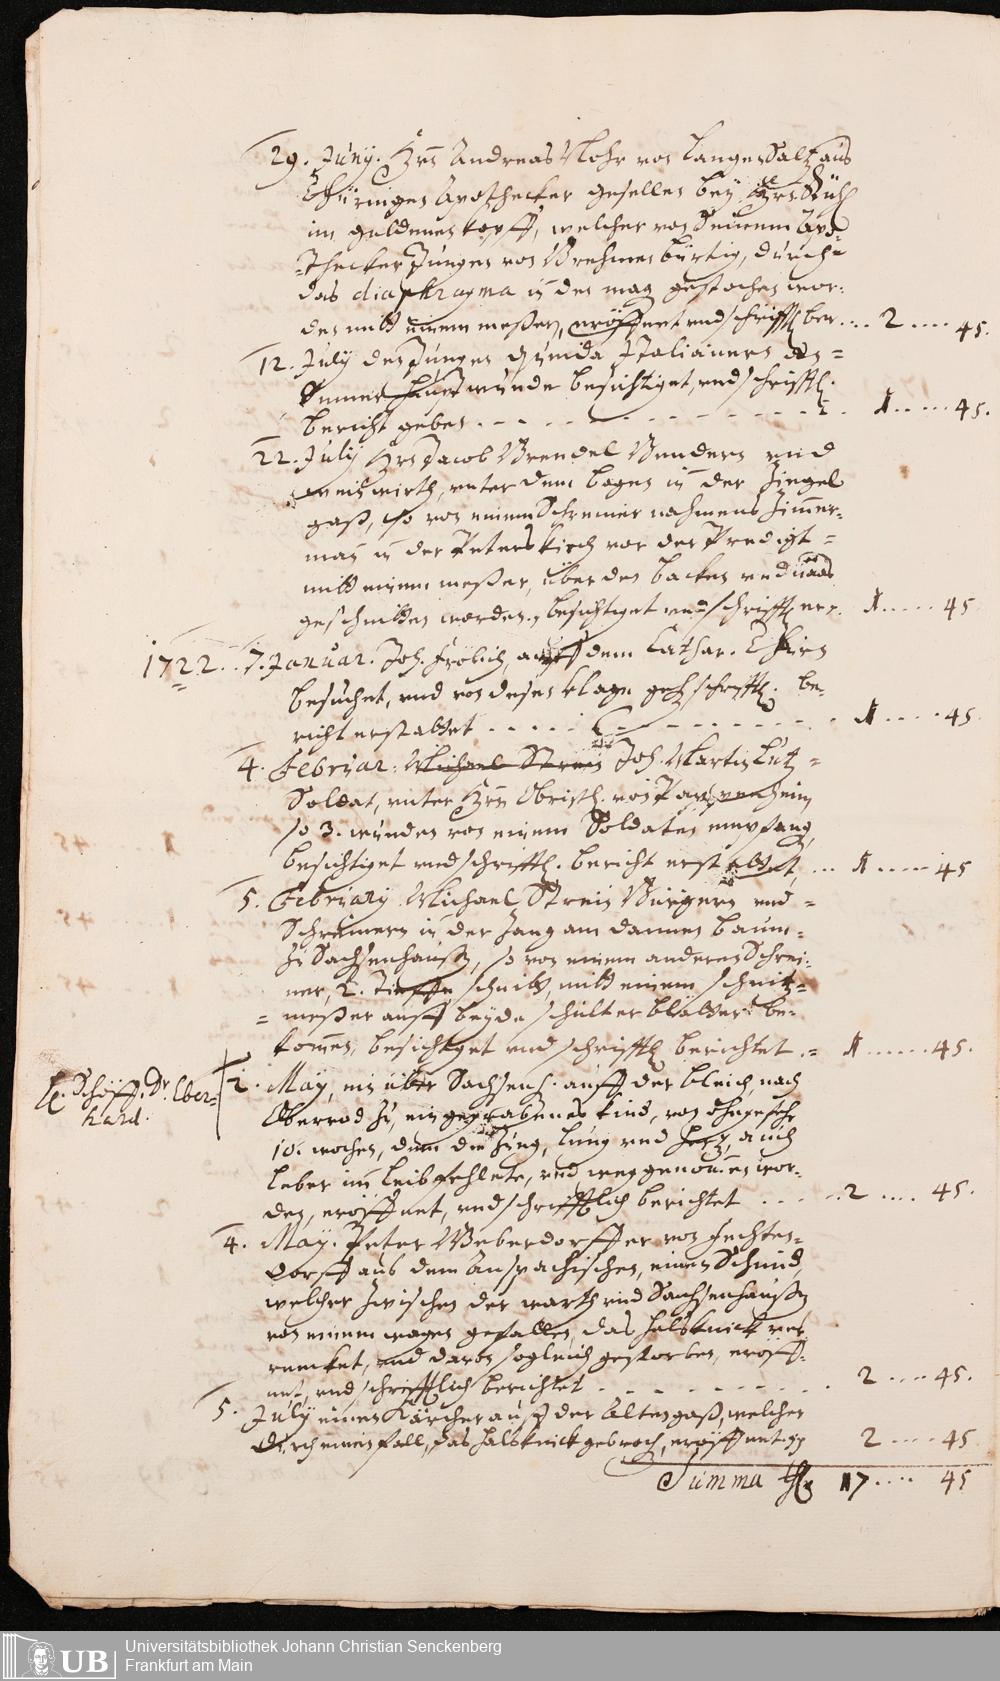 29. Juny. Hrn Andreas Mohr von Langen Saltz aus
Thüringen Apothecker gesellen bey Hrn Rühl
im guldenen kopff, welcher von seinem Apo-
=thecker Jungen von Brehmen bürtig, durch=
das diaphragma in den mag gestochen wor-
den mitt einem meßer, eröffnet und schrifftl ber.... 2 .... 45.
12. July den Jungen Italiäners an=
seiner wunde besichtiget, und schrifftl.
bericht geben . - . - . - . - . 1 .... 45.
22. July Hrn Jacob Brendel Benders und
weinwirth, unter dem bogen in der Ziegel
gaß, so von einem Schreiner nahmens Zimmer-
man in der Peters kirch vor der Predigt =
mitt einem meßer, über den backen und naas
geschnitten worden, besichtiget und schrifftl 1 .... 45
1722. 7. Januar. Joh. Frölich, auff dem Cathar. Thurn
besuchet, und von deßen klage schrifftl. be-
richt erstattet . . . . . 1 .... 45
4. Februar. Michael Strein Joh. Martin Lutz =
Soldat, unter Hrn Obristl. von
so 3. wunden von einem Soldaten empfang,
besichtiget und schrifftl. bericht erstattet, ... 1 .... 45
5. February Michael Strein Burgern und =
Schreinern in der Jang am dannen baum-
zu Sachsenhaußen, so von einem anderen Schrei-
ner, 2. Tieffe schnitt, mitt einem schnitz=
=meßer auff beyde schulter blätter be-
kommen, besichtiget und schrifftl berichtet .= 1 .... 45.
H. Schöff. Dr. Eber-
hard.
2. May, ein über Sachsenh. auff der bleich, nach
Oberrod zu, ein gegrabenes kind, von ohngefehr
10. wochen, dem die Zung, lung und hertz, auch
leber im leib fehlete, und weggenommen wor-
den, eröffnet, und schrifftlich berichtet . . . 2 .... 45.
4. May. Peter Weberdorffer von Fechten=
dorff aus dem Anspachischen, einen Schmid,
welcher zwischen der warth und Sachsenhaußen
von einem wagen gefallen, das halsknick ver
rencket, und davon sogleich gestorben, eröff-
net, und schrifftlich berichtet . . . . . 2 .... 45.
5. July einen Kärcher auff der Alten gaß, welcher
durch einen fall, das halsknick gebroch, eröffnet 2 .... 45
Summa 17 .... 45
UB Universitätsbibliothek Johann Christian Senckenberg
Frankfurt am Main